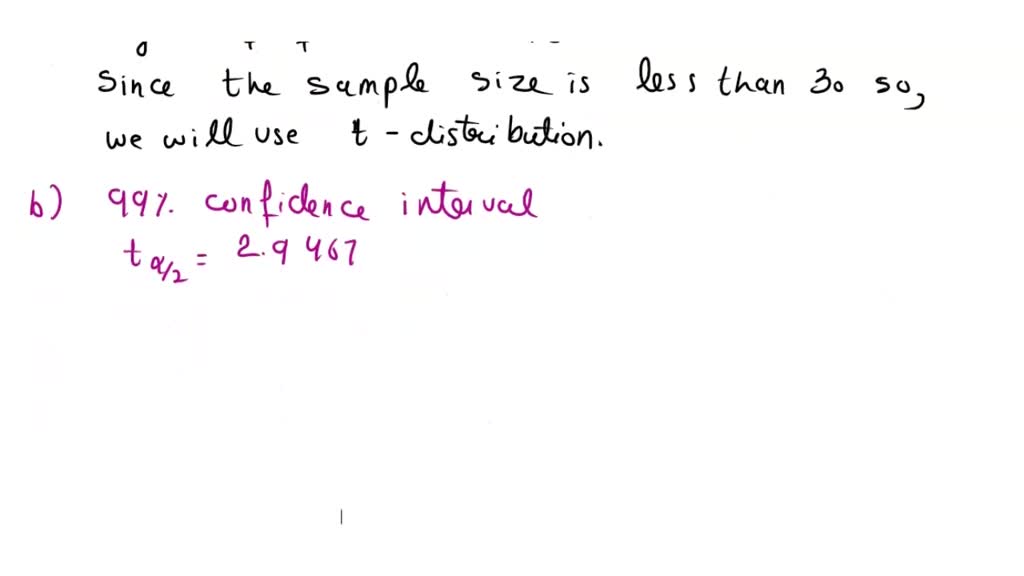 Since the sample size is less than 30 so,
we will use t - distribution.
b) 99% confidence interval
t α/2 = 2.9467